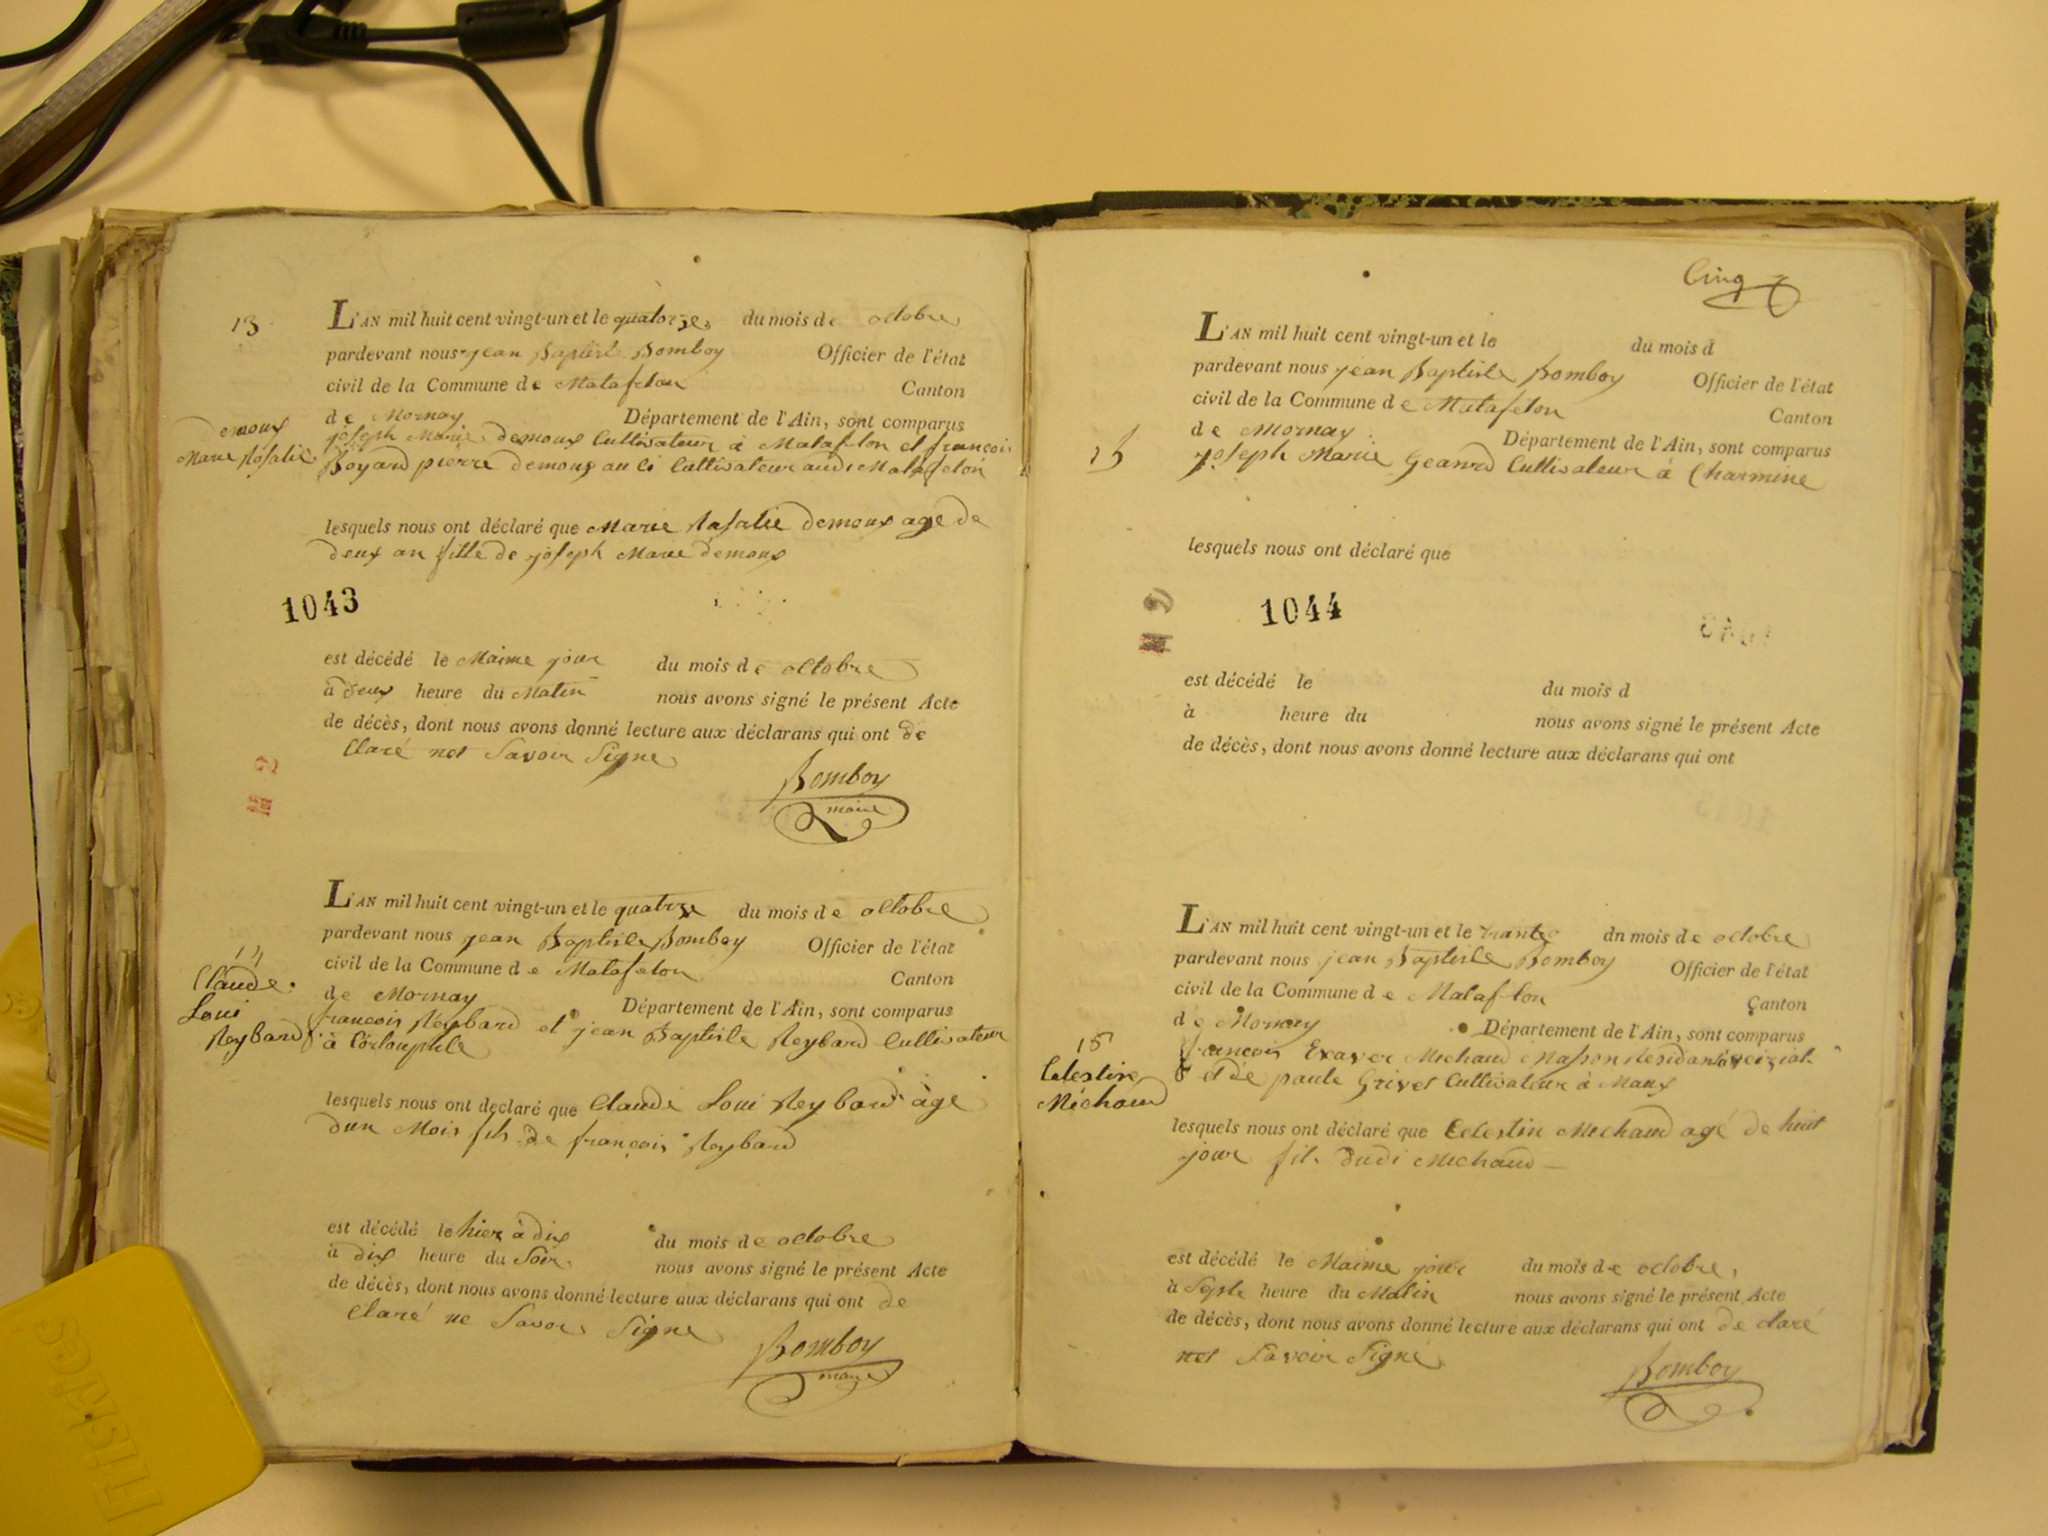 13
L'AN mil huit cent vingt-un et le quatorze du mois de octobre
pardevant nous jean Baptiste Bomboy Officier de l'état
civil de la Commune de Matafelon Canton
de Mornay Département de l'Ain, sont comparus
demoux
Marie Rosalie
joseph Marie demoux Cultivateur à Matafelon et françois
Boyard pierre demoux au ci Cultivateur audi Matafelon
lesquels nous ont déclaré que Marie Rasalie demoux age de
deux an fille de joseph Marie demoux
1043
est décédé le Maime jour du mois de octobre
à deux heure du Matin nous avons signé le présent Acte
de décès, dont nous avons donné lecture aux déclarans qui ont dé
Claré net Savoir Signe
Bomboy
maire
L'AN mil huit cent vingt-un et le quatrze du mois de octobre
pardevant nous jean Baptiste Bomboy Officier de l'état
civil de la Commune de Matafelon Canton
de Mornay Département de l'Ain, sont comparus
14
Claude
Loui
Reybard
francois Reybard et jean Baptiste Reybard Cultivateur
à
lesquels nous ont déclaré que Claude Loui Reybard âge
dun Mois fils de françois Reybard
est décédé le hier à dix du mois de octobre
à dix heure du Soir nous avons signé le présent Acte
de décès, dont nous avons donné lecture aux déclarans qui ont dé
Claré ne Savoir Signe
Bomboy
maire
Cinq
L'AN mil huit cent vingt-un et le du mois d
pardevant nous jean Baptiste Bomboy Officier de l'état
civil de la Commune de Matafelon Canton
de Mornay Département de l'Ain, sont comparus
15
joseph Marie Cultivateur à Charmine
lesquels nous ont déclaré que
1044
est décédé le du mois d
à heure du nous avons signé le présent Acte
de décès, dont nous avons donné lecture aux déclarans qui ont
L'AN mil huit cent vingt-un et le trante dn mois de octobre
pardevant nous jean Baptiste Bomboy Officier de l'état
civil de la Commune de Mataflon Canton
de Mornay Département de l'Ain, sont comparus
15
Celestin
Michaud
francois Exaver Michaud Masson Residant à
et de paule Grivet Cultivateur à Maux
lesquels nous ont déclaré que Celestin Michaud agé de huit
jour fils dudi Michaud
est décédé le Maime jour du mois de octobre
à Septe heure du Matin nous avons signé le présent Acte
de décès, dont nous avons donné lecture aux déclarans qui ont de claré
net Savoir Signé
Bomboy